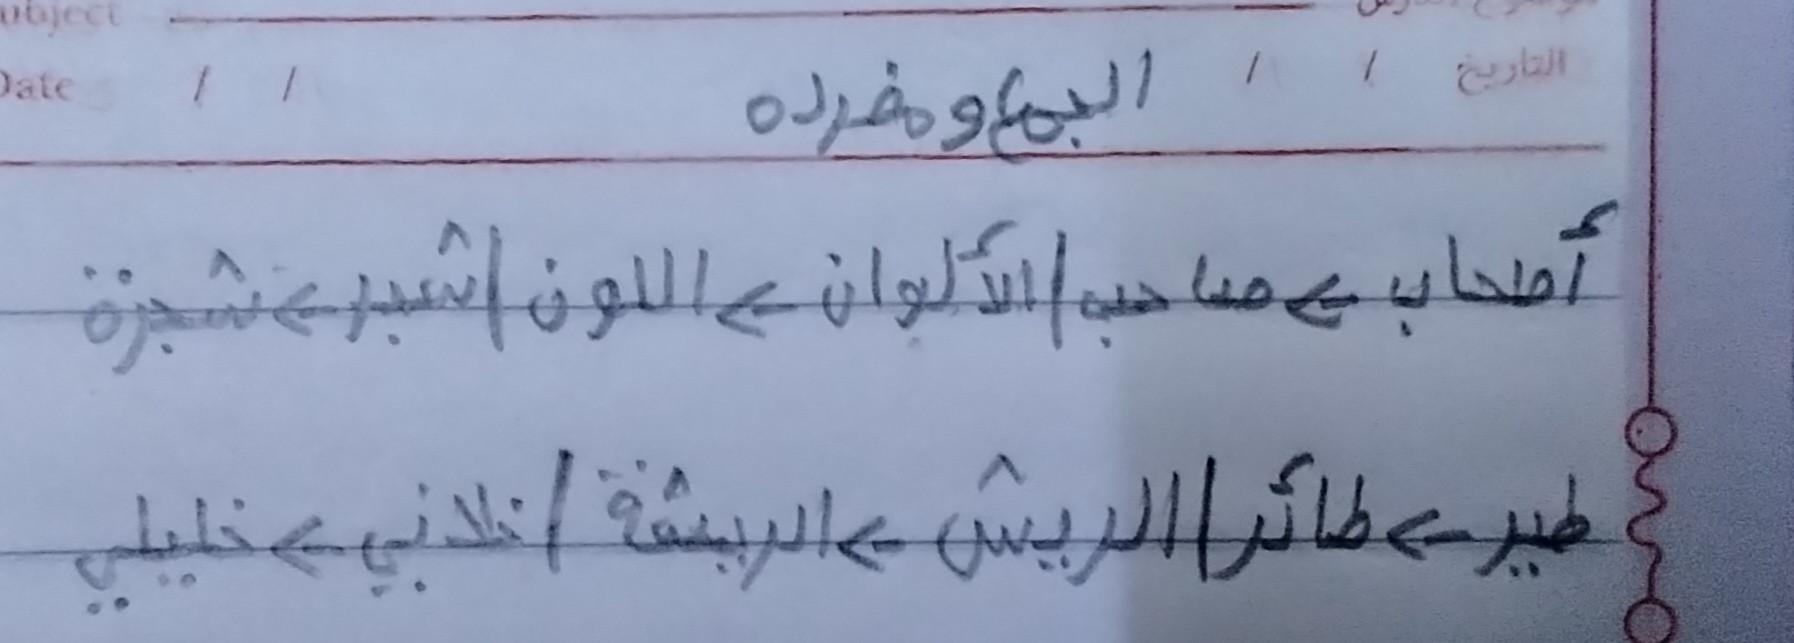 ubject
Date / / / / التاريخ
الجمع ومفرده
أصحاب ← صاحب / الألوان ← اللون / شجر ← شجرة
طير ← طائر / الريش ← الريشة / خلاني ← خليلي